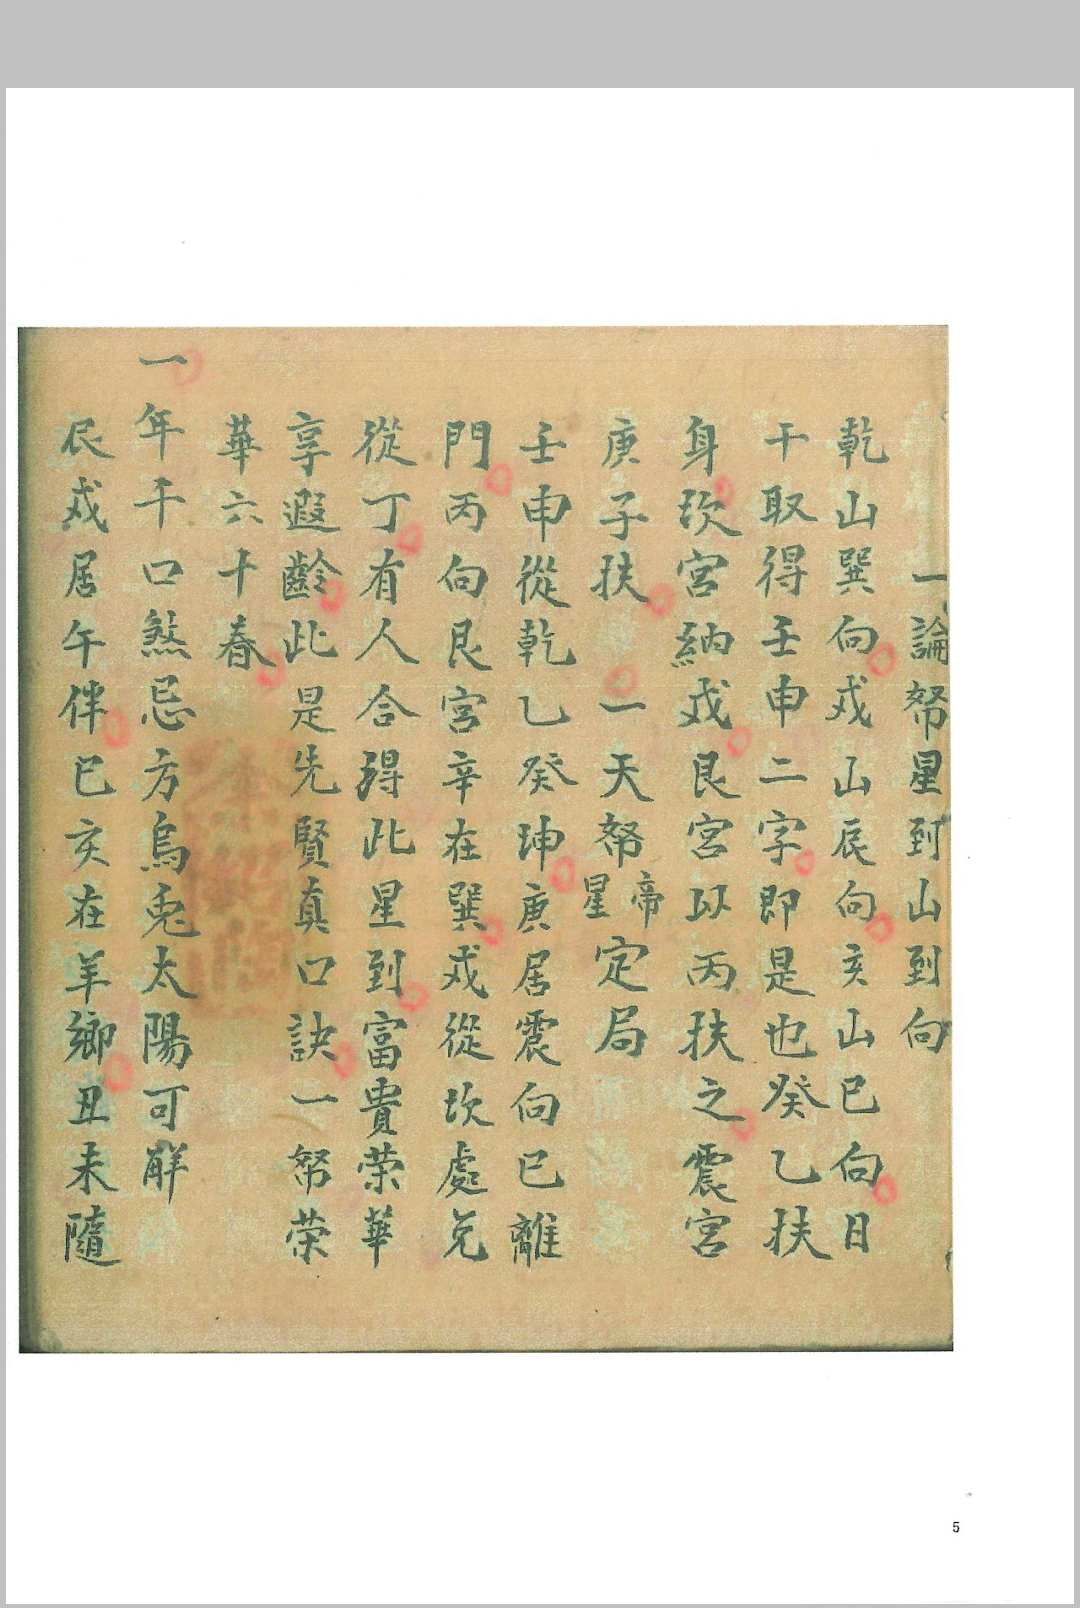 一論帑星到山到向
乾山巽向戍山辰向亥山巳向日
干取得壬申二字即是也癸乙扶
身坎宮納戍艮宮以丙扶之震宮
庚子扶一天帑星帝定局
壬申從乾乙癸坤庚居震向巳離
門丙向艮宮辛在巽戍從坎處兌
從丁有人合得此星到富貴荣華
享遐齡此是先賢真口訣一帑荣
華六十春
一年干口煞忌方烏兎太陽可觧
辰戍居午伴巳亥在羊鄉丑未隨
5